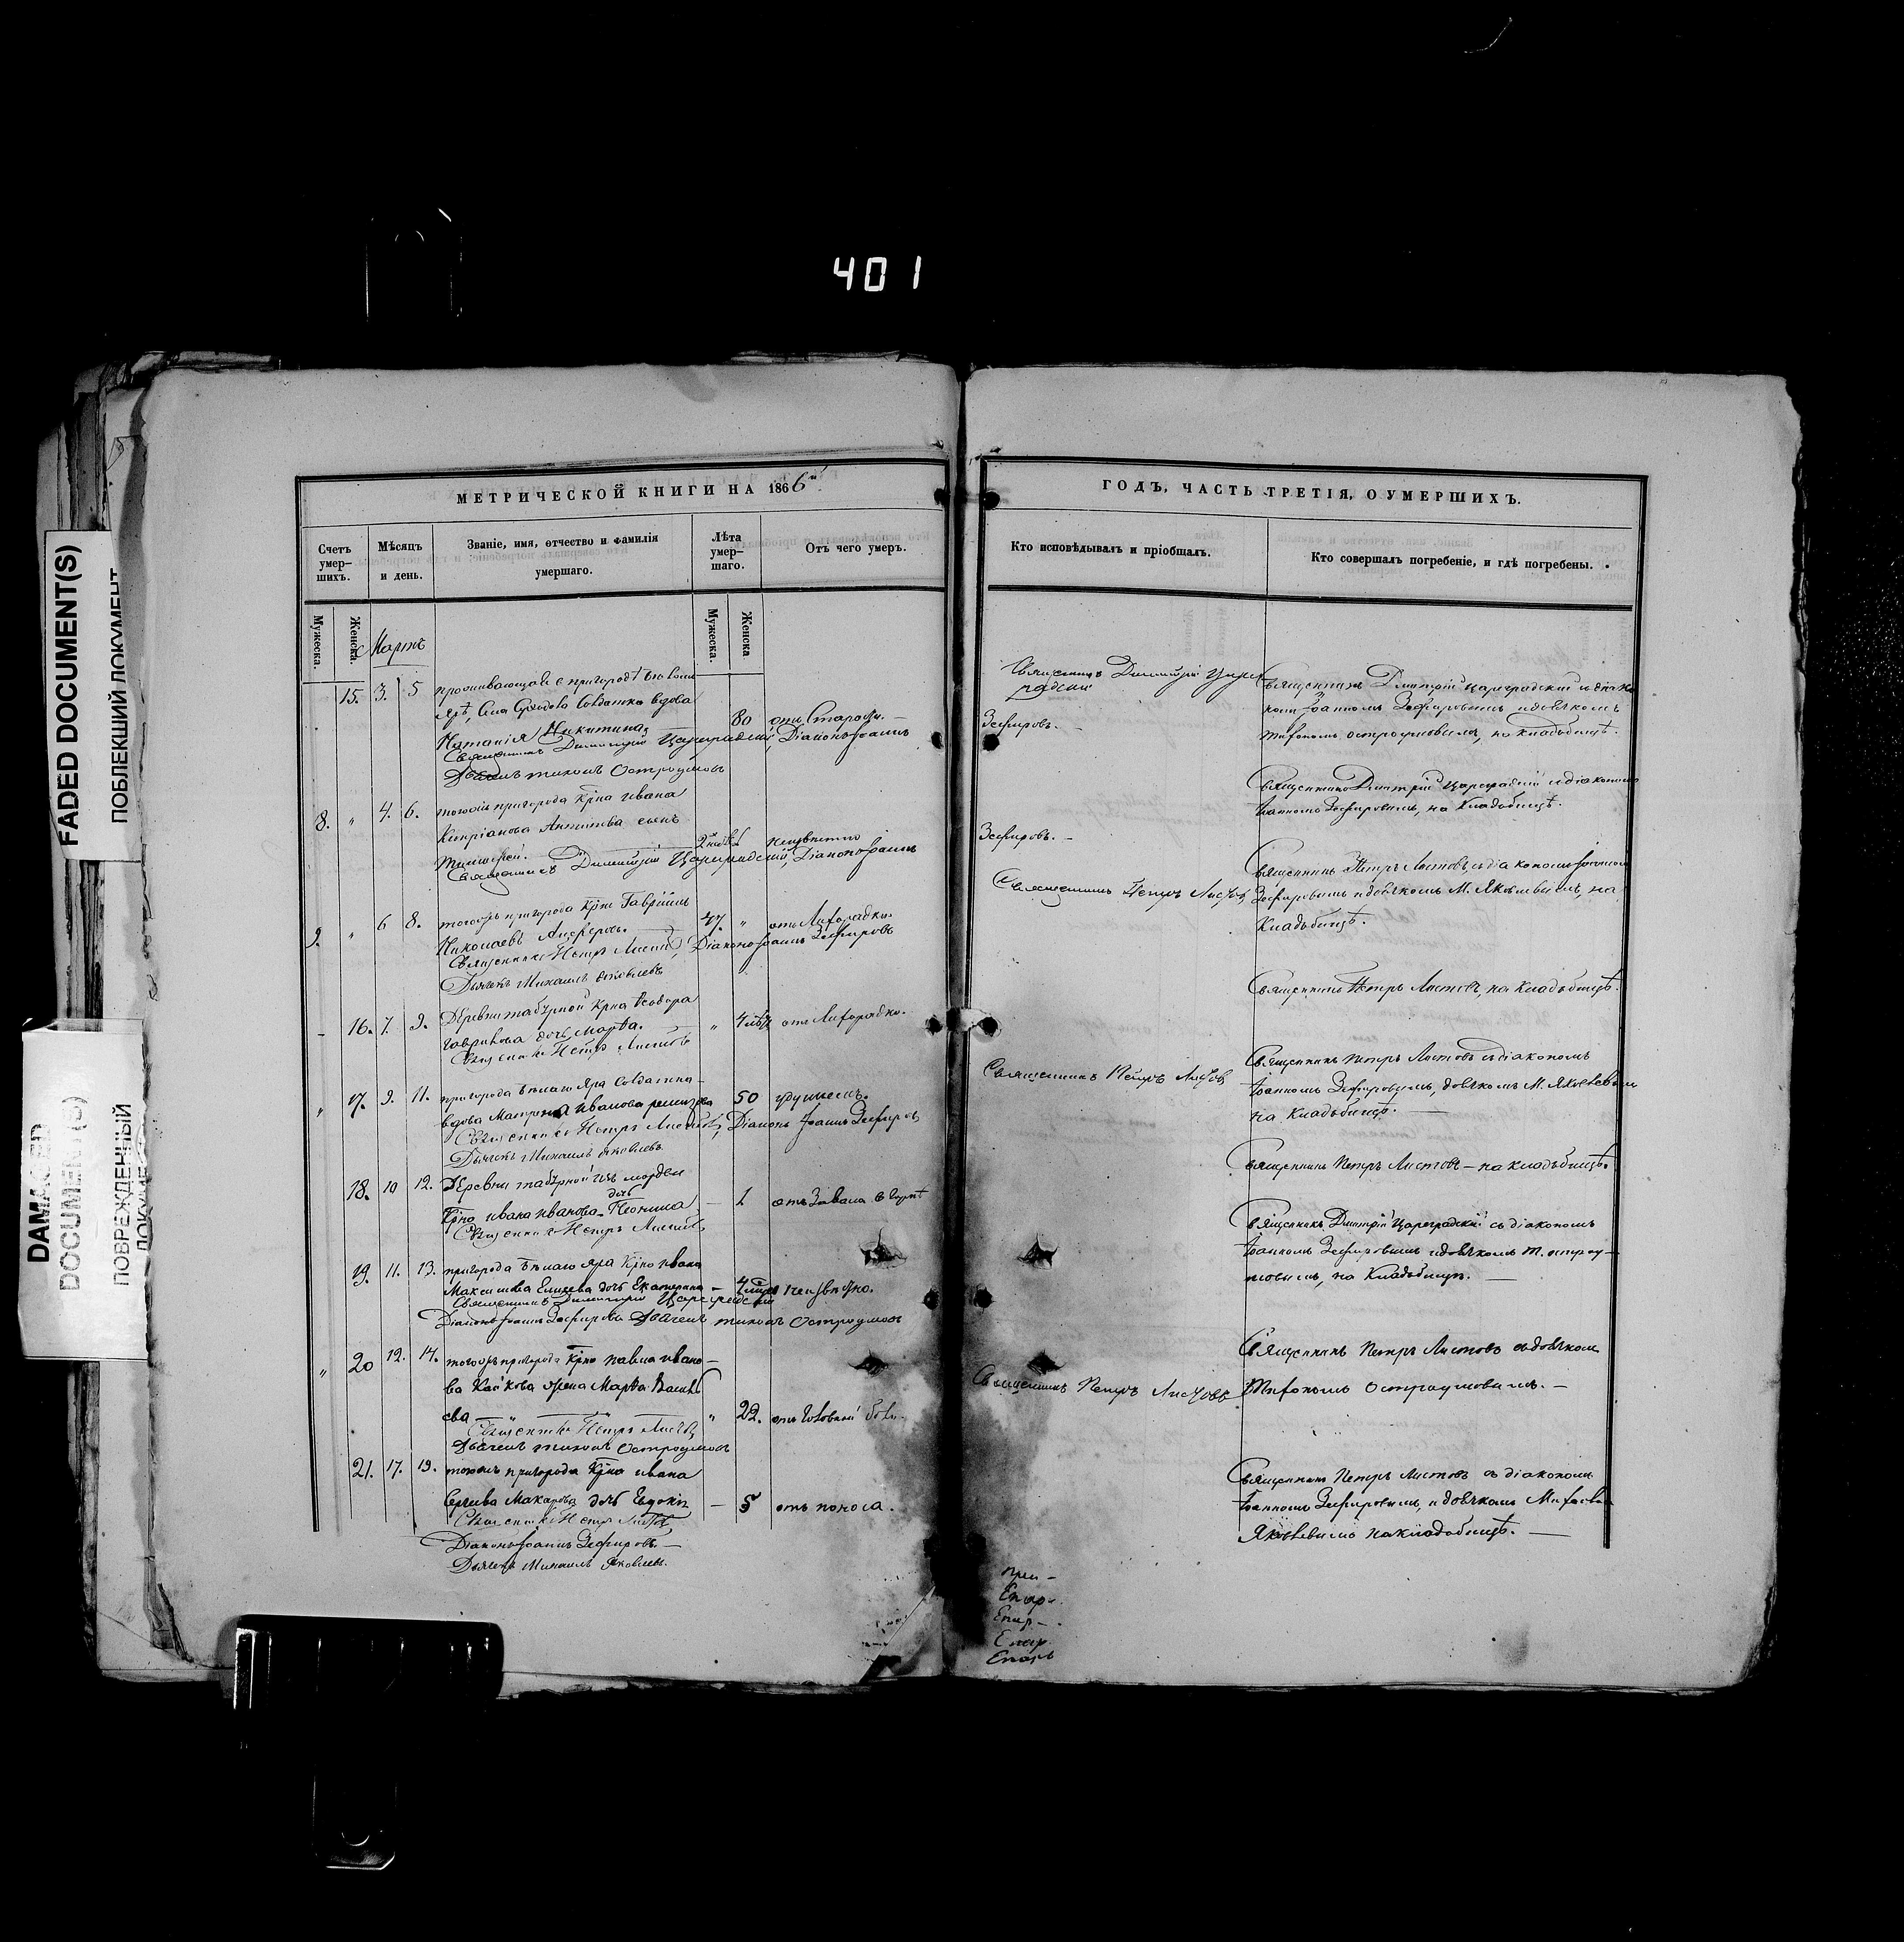 401
FADED DOCUMENT(S)
ПОБЛЕКШИЙ ДОКУМЕНТ
DAMAGED
DOCUMENT(S)
ПОВРЕЖДЕННЫЙ
МЕТРИЧЕСКОЙ КНИГИ НА 1866й
Счетъ умер-
шихъ.
Мѣсяцъ
и день.
Званіе, имя, отчество и фамилія
умершаго.
Лѣта
умер-
шаго.
Отъ чего умеръ.
Мужеска.
Женска.
Мужеска.
Женска
Мартъ
15. 3. 5 проживающая в пригородѣ Бѣломъ
Ярѣ, Солдатка вдова
Наталія Никитина 80 отъ Старости.
Священникъ Димитрій Цареградскій Діаконъ Іоаннъ
Дьячекъ Тихонъ Остроумовъ
8. " 4. 6. тогожъ пригорода Крна Ивана
Кипріанова сынъ
Тимофей. неизвѣстно
Священникъ Димитрій Цареградскій, Діаконъ Іоаннъ
Зефировъ.
9. " 6 8. тогожъ пригорода Крне Гавріилъ
Николаевъ 47. " отъ Лихорадки.
Священникъ Петръ Листовъ, Діаконъ Іоаннъ Зефировъ
Дьячекъ Михаилъ Яковлевъ
- 16. 7. 9. Деревни Крна Ѳеодора
Гаврилова дочь Марѳа. " 4 отъ Лихорадки.
Священникъ Петръ Листовъ
" 17. 9. 11. пригорода Бѣлаго Яра Солдатка
вдова Матрена Иванова 50 удушьемъ.
Священникъ Петръ Листовъ, Діаконъ Іоаннъ Зефировъ
Дьячекъ Михаилъ Яковлевъ
18. 10 12. Деревни изъ мордвы
дочь
Крна Ивана Иванова 1 отъ Завала в горлѣ
Священникъ Петръ Листовъ
19. 11. 13. пригорода Бѣлаго Яра Крна Ивана
Максимова Елисеева дочь Екатерина - 4 неизвѣстно.
Священникъ Димитрій Цареградскій
Діаконъ Іоаннъ Зефировъ Дьячекъ Тихонъ Остроумовъ
" 20 12. 14. тогожъ пригорода Крна Павла Ивано-
ва жена Марѳа Василь
ева " 22. отъ Головной боли.
Священникъ Петръ Листовъ
Дьячекъ Тихонъ Остроумовъ
21. 17. 19. тогожъ пригорода Крна Ивана
Сергеева Макарова дочь Евдокія - 5 отъ поноса.
Священникъ Петръ Листовъ
Діаконъ Іоаннъ Зефировъ.
Дьячекъ Михаилъ Яковлевъ.
ГОДЪ, ЧАСТЬ ТРЕТІЯ, О УМЕРШИХЪ.
Кто исповѣдывалъ и пріобщалъ.
Кто совершалъ погребеніе, и гдѣ погребены.
Священникъ Димитрій Царег
радскій
Зефировъ.
Священникъ Димитрій Цареградскій с діа
кономъ Іоанномъ Зефировымъ и дьячкомъ
Тихономъ Остроумовымъ, на кладьбищѣ.
Священникъ Димитрій Цареградскій с діакономъ
Іоанномъ Зефировымъ, на Кладьбищѣ.
Священникъ Петръ Листовъ
Священникъ Петръ Листовъ съ діакономъ Іоанномъ
Зефировымъ и дьячкомъ М. Яковлевымъ, на
Кладьбищѣ.
Священникъ Петръ Листовъ, на Кладьбищѣ.
Священникъ Петръ Листовъ
Священникъ Петръ Листовъ съ діакономъ
Іоанномъ Зефировымъ, дьячкомъ М. Яковлевымъ
на Кладьбищѣ.
Священникъ Петръ Листовъ - на кладьбищѣ.
Священникъ Димитрій Цареградскій съ діакономъ
Іоанномъ Зефировымъ и дьячкомъ Т. Остроу-
мовымъ, на Кладьбищѣ.
Священникъ Петръ Листовъ
Священникъ Петръ Листовъ съ дьячкомъ
Тихономъ Остроумовымъ.
Священникъ Петръ Листовъ съ діакономъ
Іоанномъ Зефировымъ, и дьячкомъ
Яковлевымъ на кладьбищѣ.
при-
Епар-
Епар-
Епар
Епарх